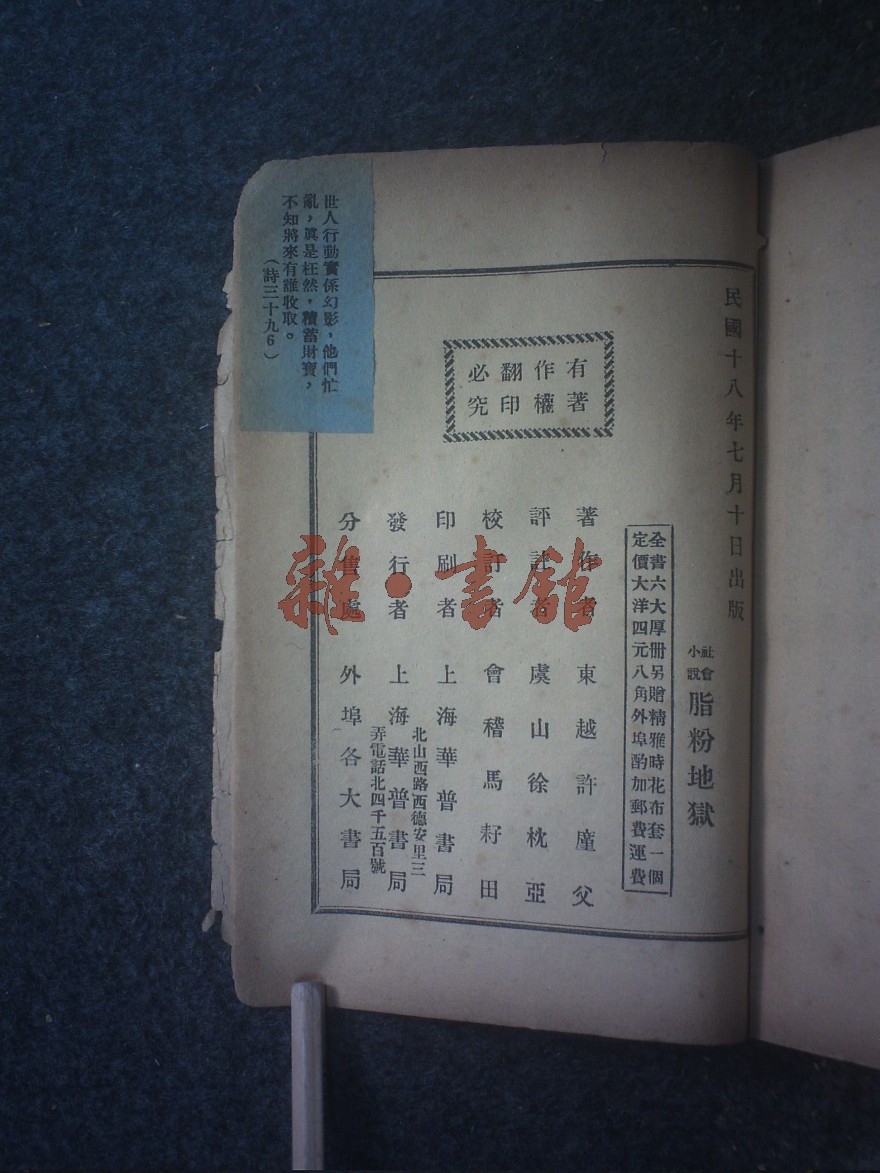 民國十八年七月十日出版
社會
小說
脂粉地獄
全書六大厚册另贈精雅時花布套一個
定價大洋四元八角外埠酌加郵費運費
有著
作權
翻印
必究
著作者 東越許廑父
評註者 虞山徐枕亞
校訂者 會稽馬籽田
印刷者 上海華普書局
北山西路西德安里三
發行者 上海華普書局
弄電話北四千五百號
分售處 外埠各大書局
世人行動實係幻影，他們忙
亂，眞是枉然，積蓄財寶，
不知將來有誰收取。
（詩三十九6）
雜·書館